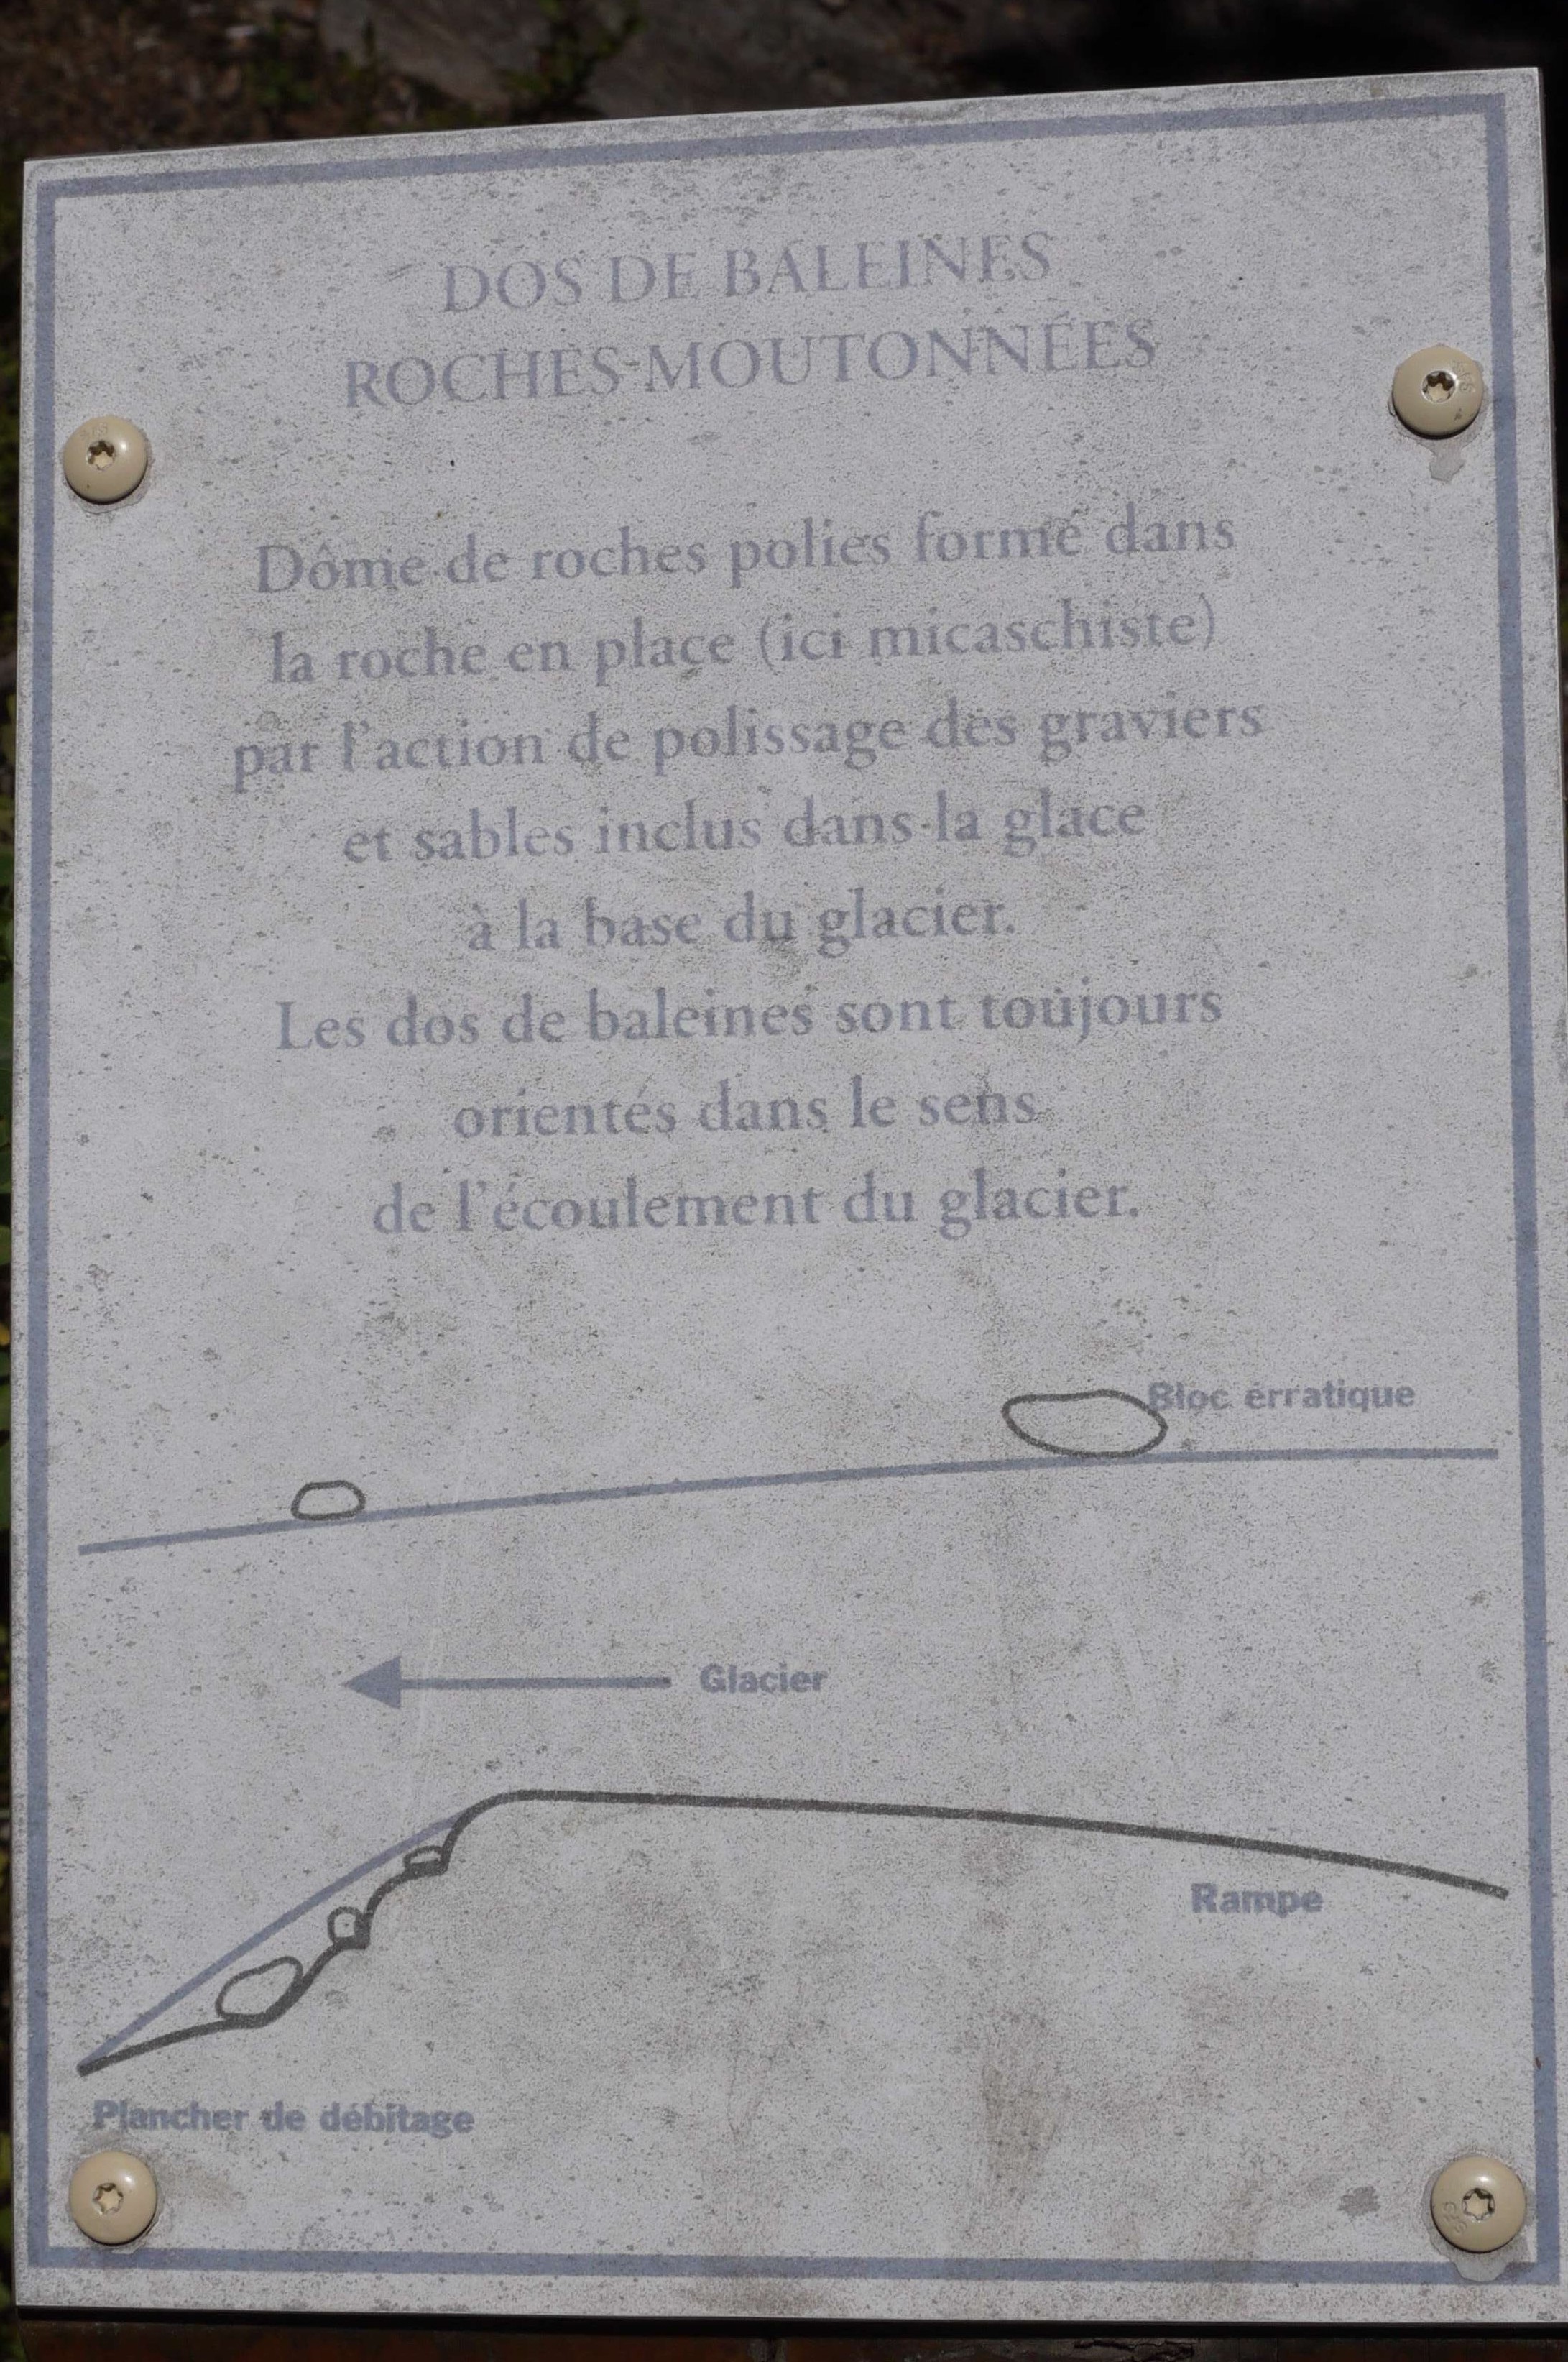 DOS DE BALEINES
ROCHES MOUTONNÉES
Dôme de roches polies formé dans
la roche en place (ici micaschiste)
par l'action de polissage des graviers
et sables inclus dans la glace
à la base du glacier.
Les dos de baleines sont toujours
orientés dans le sens
de l'écoulement du glacier.
Bloc érratique
Glacier
Rampe
Plancher de débitage